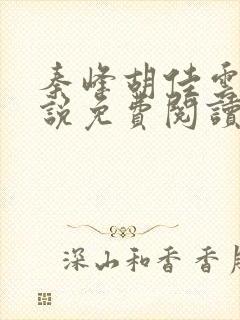 秦峰胡佳雲
說免費閱讀
深山和香香